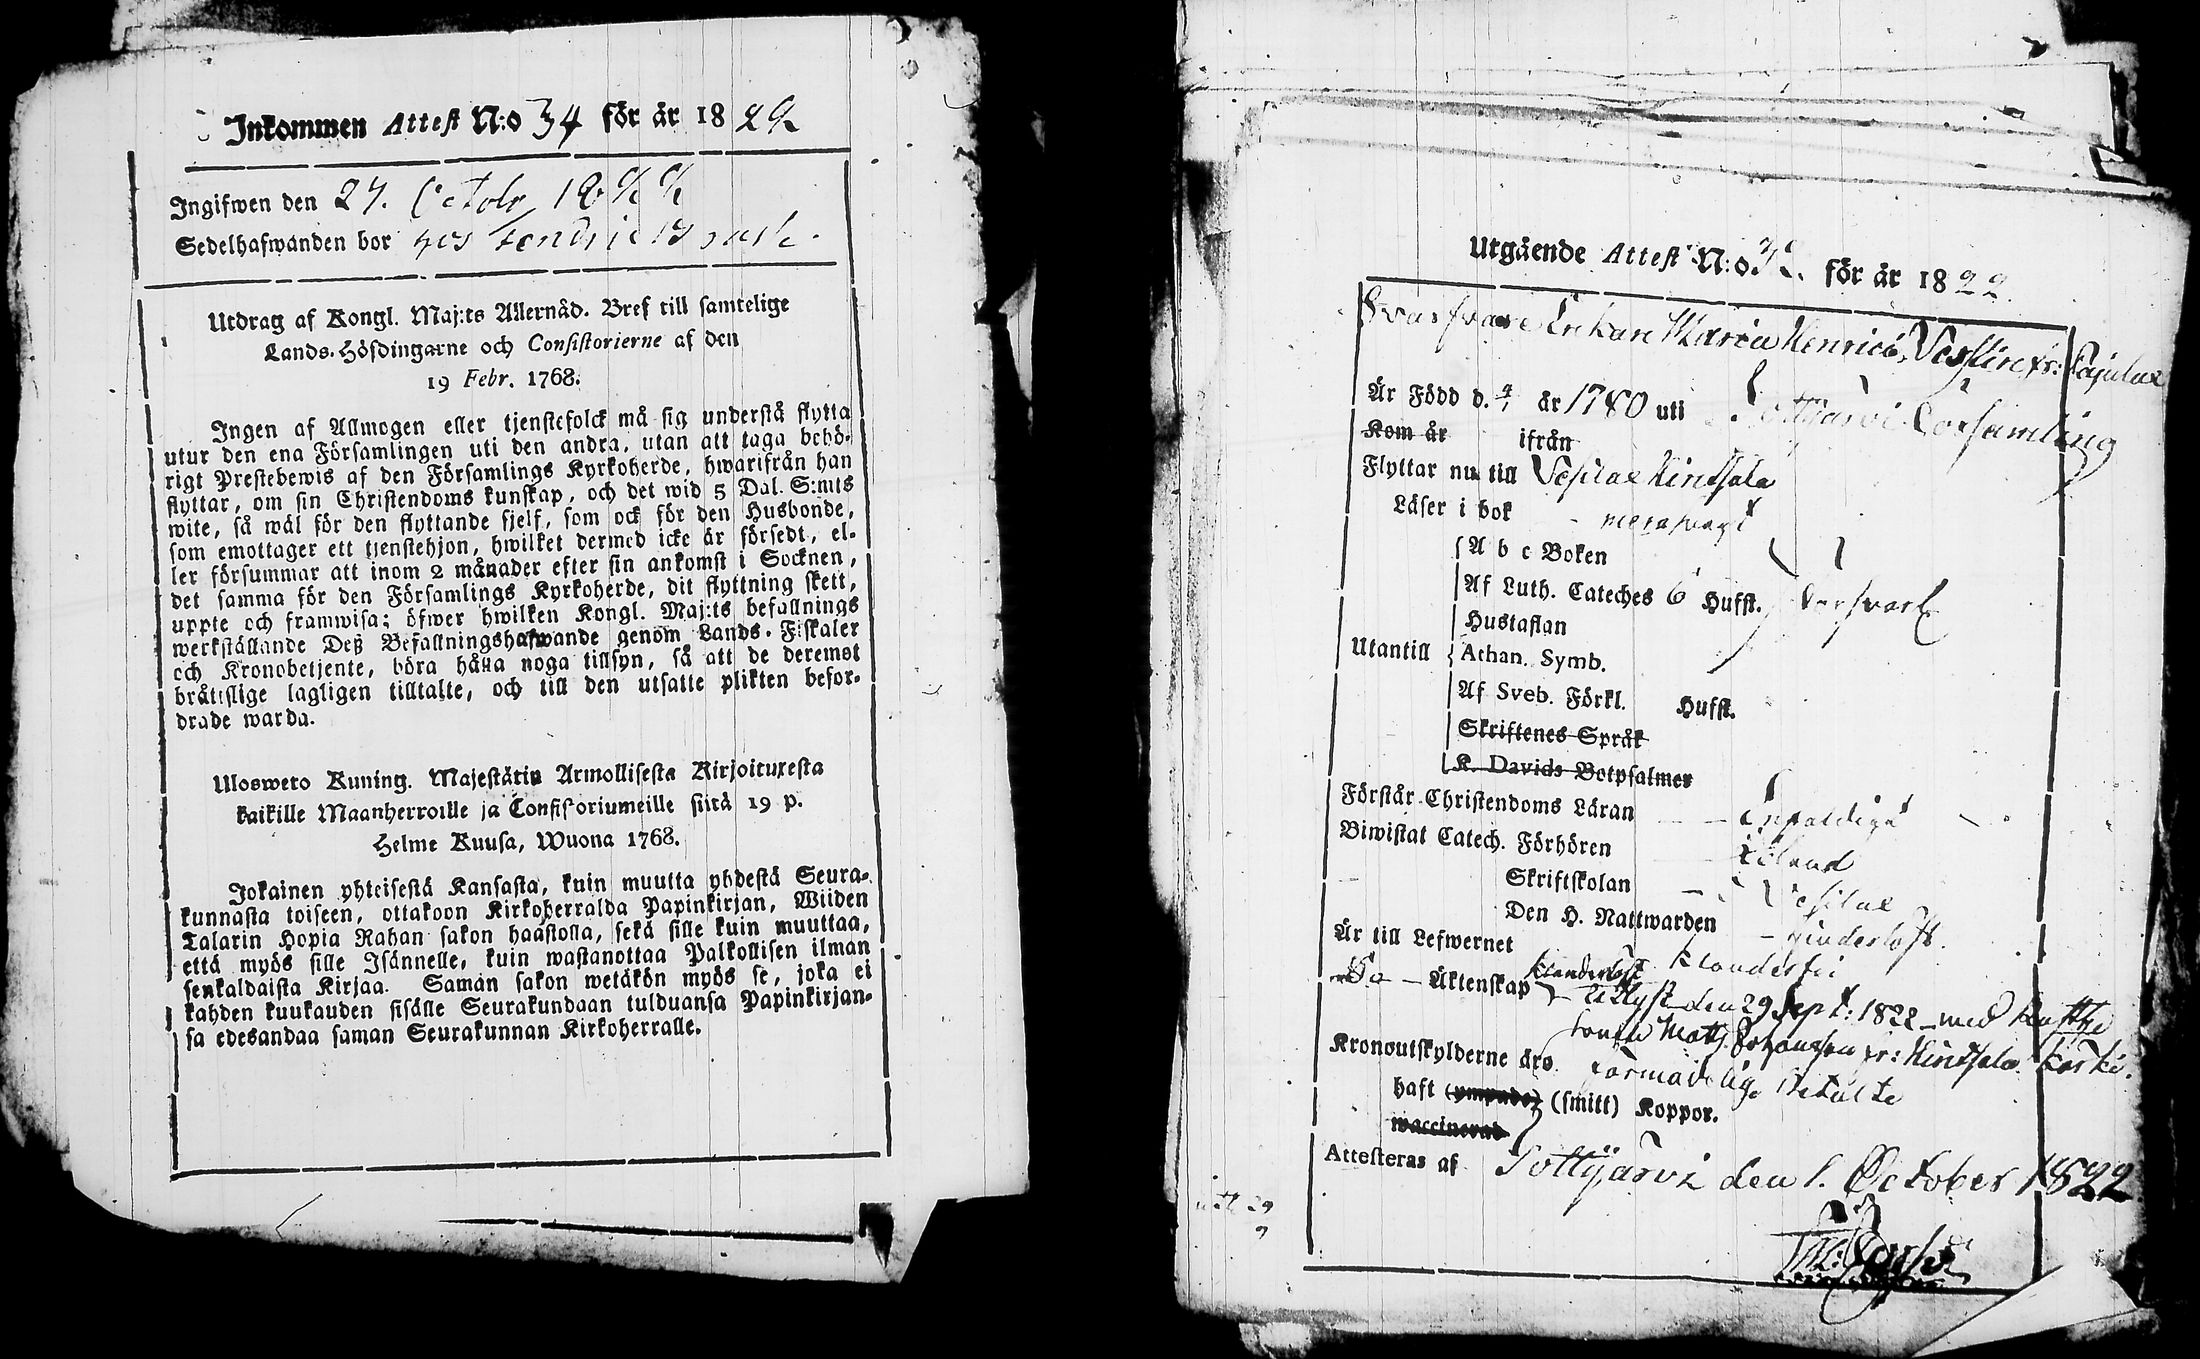 Inkommen Attest N:o 34 för år 1822
Ingifwen den 27. Octobr 1822
Sedelhafwanden bor hos
Utdrag af Kongl. Maj:ts Allernåd. Bref till samtelige
Lands-Höfdingarne och Consistorierne af den
19 Febr. 1768.
Ingen af Allmogen eller tjenstefolck må sig understå flytta
utur den ena Församlingen uti den andra, utan att taga behö-
rigt Prestebewis af den Församlings Kyrkoherde, hwarifrån han
flyttar, om sin Christendoms kunskap, och det wid 5 Dal. S:mts
wite, så wäl för den flyttande sjelf, som ock för den Husbonde,
som emottager ett tjenstehjon, hwilket dermed icke är försedt, el-
ler försummar att inom 2 månader efter sin ankomst i Socknen,
det samma för den Församlings Kyrkoherde, dit flyttning skett,
uppte och framwisa; öfwer hwilken Kongl. Maj:ts befallnings
werkställande Deß Befallningshafwande genom Lands-Fiskaler
och Kronobetjente, böra hålla noga tillsyn, så att de deremot
bråttslige lagligen tilltalte, och till den utsatte plikten befor-
drade warda.
Ulosweto Kuning. Majestätin Armollisesta Kirjoituxesta
kaikille Maanherroille ja Consistoriumeille siitä 19 p.
Helme Kuusa, Wuona 1768.
Jokainen yhteisestä Kansasta, kuin muutta yhdestä Seura-
kunnasta toiseen, ottakoon Kirkoherralda Papinkirjan, Wiiden
Talarin Hopia Rahan sakon haastolla, sekä sille kuin muuttaa,
että myös sille Isännelle, kuin wastanottaa Palkollisen ilman
senkaldaista Kirjaa. Saman sakon wetäkön myös se, joka ei
kahden kuukauden sisälle Seurakundaan tulduansa Papinkirjan-
sa edesandaa saman Seurakunnan Kirkoherralle.
Utgående Attest N:o 32. för år 1822.
Enkan Maria Henrics
Är Född d. 4/1 år 1780 uti Pottjärvi Församling
Kom år ifrån
Flyttar nu till Vesilax Hinsala
Läser i bok
A b c Boken
Af Luth. Cateches 6 Hufst. Försvarl
Hustaflan
Utantill Athan. Symb.
Af Sveb. Förkl. Hufst.
Skriftenes Språk
K. Davids Botpsalmer
Förstår Christendoms Läran Enfaldigt
Biwistat Catech. Förhören
Skriftskolan
Den H. Nattwarden
Är till Lefwernet
Äktenskap Utlyst den 29 Sept: 1822 med
Matts Johansson fr: Hinsala
Kronoutskylderne äro betalte
haft (ympade) (smitt) Koppor.
waccinerad
Attesteras af Pottjärvi den 1. October 1822